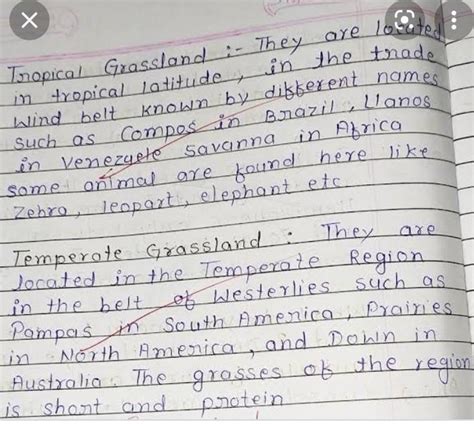 Tropical Grassland :- They are located
in tropical latitude, in the trade
Wind belt known by different names
such as Compos in Brazil, Llanos
in Venezuele Savanna in Africa
some animal are found here like
Zebra, leopart, elephant etc.
Temperate Grassland : They are
located in the Temperate Region
in the belt of Westerlies such as
Pampas in South America, Prairies
in North America, and Down in
Australia The grasses of the region
is short and protein